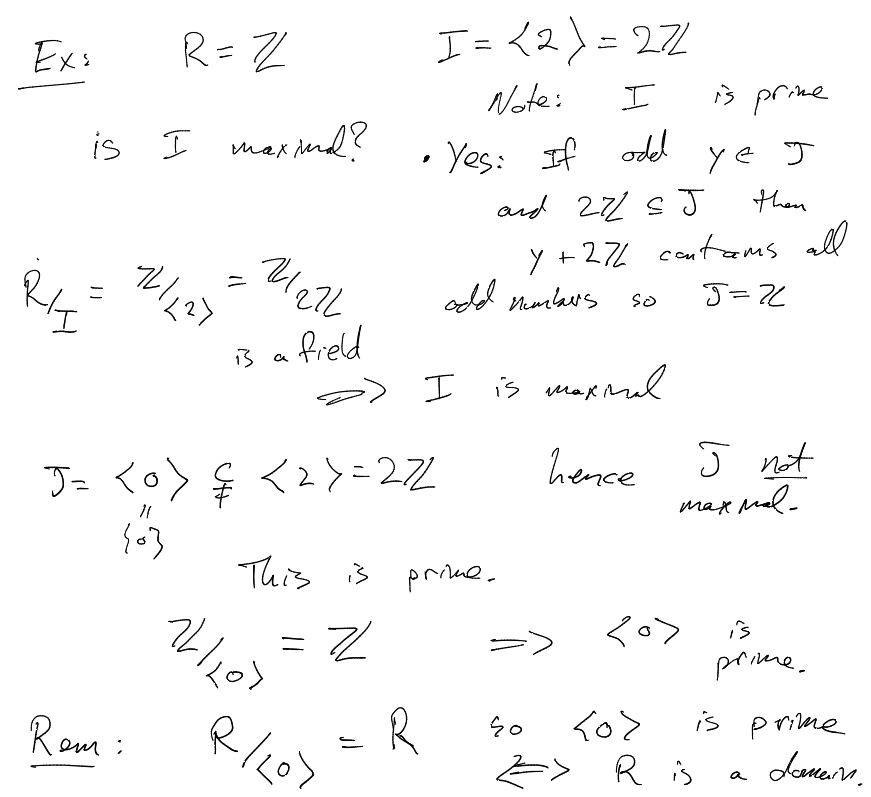 Ex: R = ℤ I = ⟨2⟩ = 2ℤ
Note: I is prime
is I maximal? • Yes: If odd y ∈ J
and 2ℤ ⊆ J then
y + 2ℤ contains all
odd numbers so J = ℤ
R/I = ℤ/⟨2⟩ = ℤ/2ℤ
is a field
⟹ I is maximal
J = ⟨0⟩ ⊊ ⟨2⟩ = 2ℤ hence J not
maximal.
=
{0}
This is prime.
ℤ/⟨0⟩ = ℤ ⟹ ⟨0⟩ is
prime.
Rem: R/⟨0⟩ = R so ⟨0⟩ is prime
⟺ R is a domain.